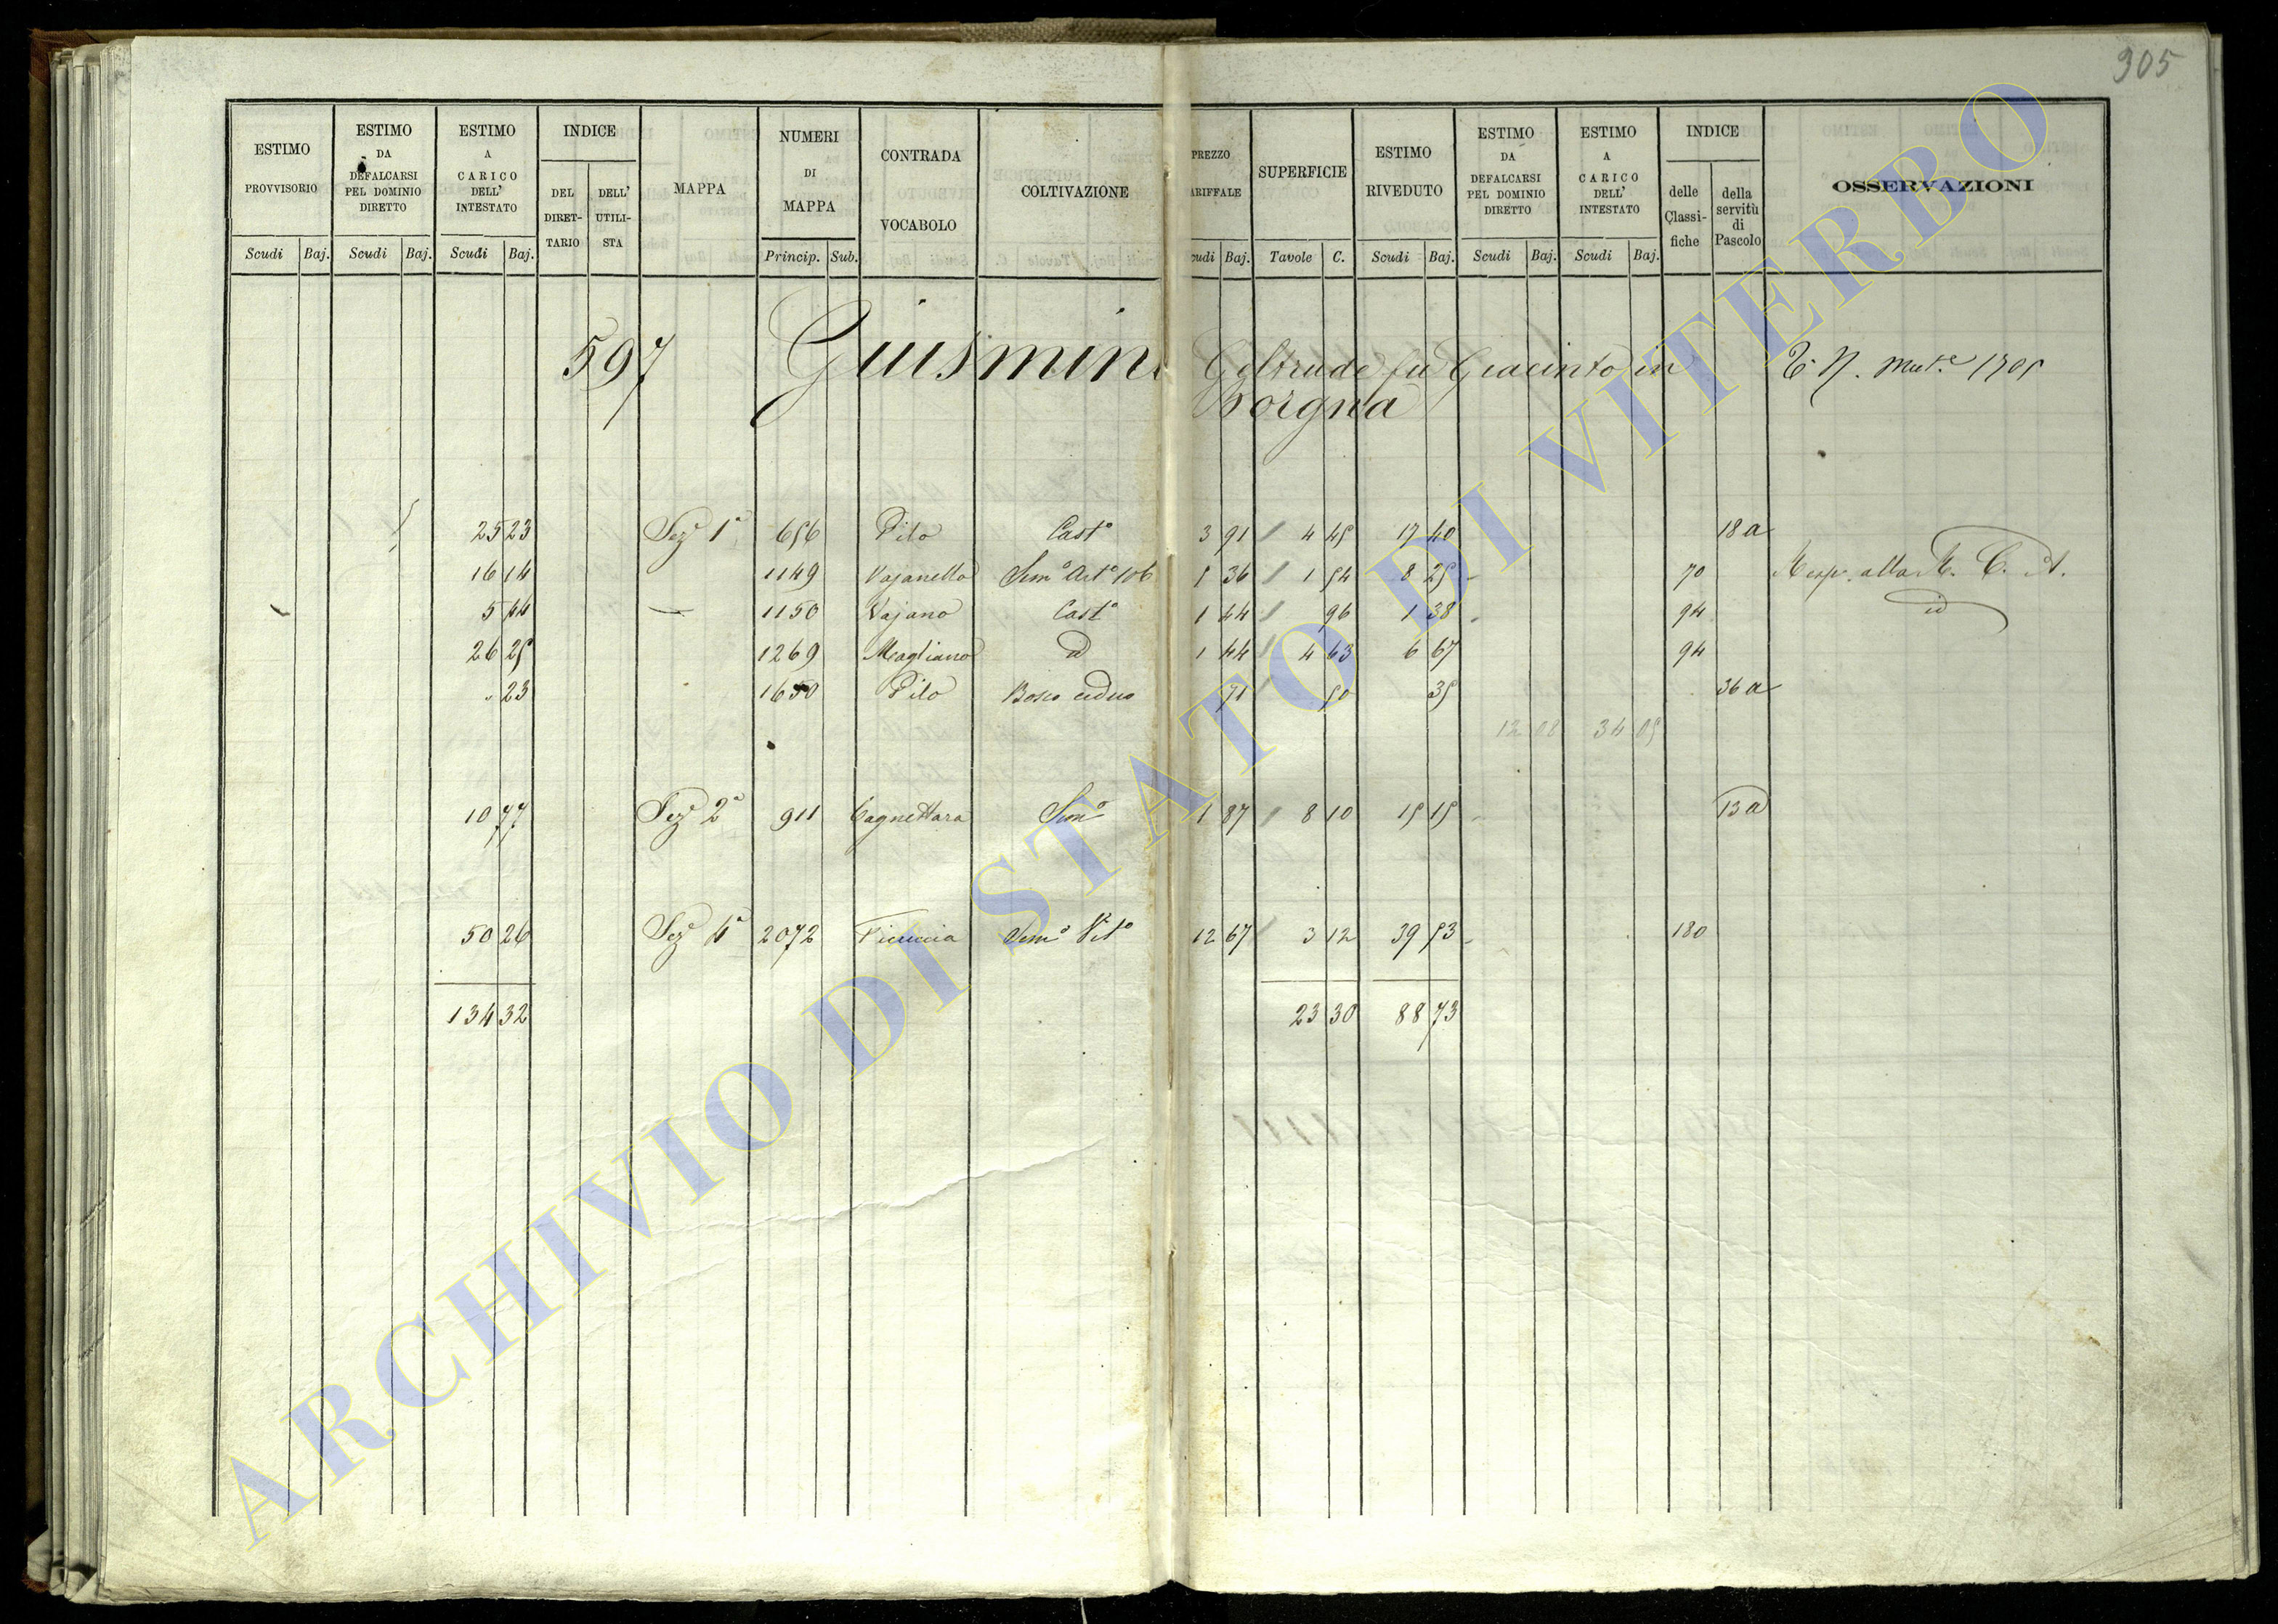 305
ESTIMO PROVVISORIO Scudi Baj.
ESTIMO DA DEFALCARSI PEL DOMINIO DIRETTO Scudi Baj.
ESTIMO A CARICO DELL' INTESTATO Scudi Baj.
INDICE DEL DIRET-TARIO DELL' UTILI-STA
MAPPA
NUMERI DI MAPPA Princip. Sub.
CONTRADA VOCABOLO
COLTIVAZIONE
PREZZO ARIFFALE cudi Baj.
SUPERFICIE Tavole C.
ESTIMO RIVEDUTO Scudi Baj.
ESTIMO DA DEFALCARSI PEL DOMINIO DIRETTO Scudi Baj.
ESTIMO A CARICO DELL' INTESTATO Scudi Baj.
INDICE delle Classi-fiche della servitù di Pascolo
OSSERVAZIONI
597 Guismini Geltrude fu Giacinto in
Borgna
25 23 Sez 1ª 656 Pilo Castº 3 91 4 45 17 40 18 a
16 14 1149 Vajanello Semº Artº 106 5 36 1 54 8 25 70
5 44 — 1150 Vajano Castº 1 44 96 1 38 94 id
26 25 1269 Magliano d 1 44 4 63 6 67 94
23 1650 Pilo Bosco ceduo 71 50 35 36 a
12 08 34 05
10 77 Sez 2ª 911 Cagnettara Semº 1 87 8 10 15 15 13 a
50 26 Sez 4ª 2072 Ficuccia Semº Vitº 12 67 3 12 39 53 180
134 32 23 30 88 73
ARCHIVIO DI STATO DI VITERBO